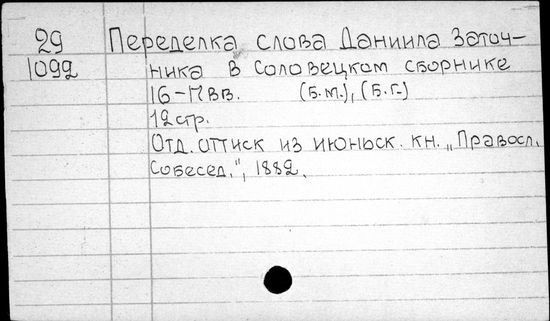 29 Переделка слова Даниила Заточ-
1092 ника в Соловецком сборнике
16-17 вв. (Б.м.), (Б.г.)
12 стр.
Отд. оттиск из июньск. кн. „Правосл.
Собесед.", 1882.